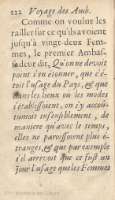 222 Voyage des Amb.
Comme on voulut les
railler sur ce qu'ils avoient
jusqu'à vingt-deux Fem-
mes, le premier Ambas-
sadeur dit, Qu'on ne devoit
point s'en étonner, que c'é-
toit l'usage du Pays, & que
dans les lieux où les modes
s'établissoient, on s'y accoû-
tumoit insensiblement, de
maniere qu'avec le temps,
elles ne paroissoient plus é-
tranges, & que par exemple
s'il arrivoit que ce fust un
jour l'usage que les Femmes